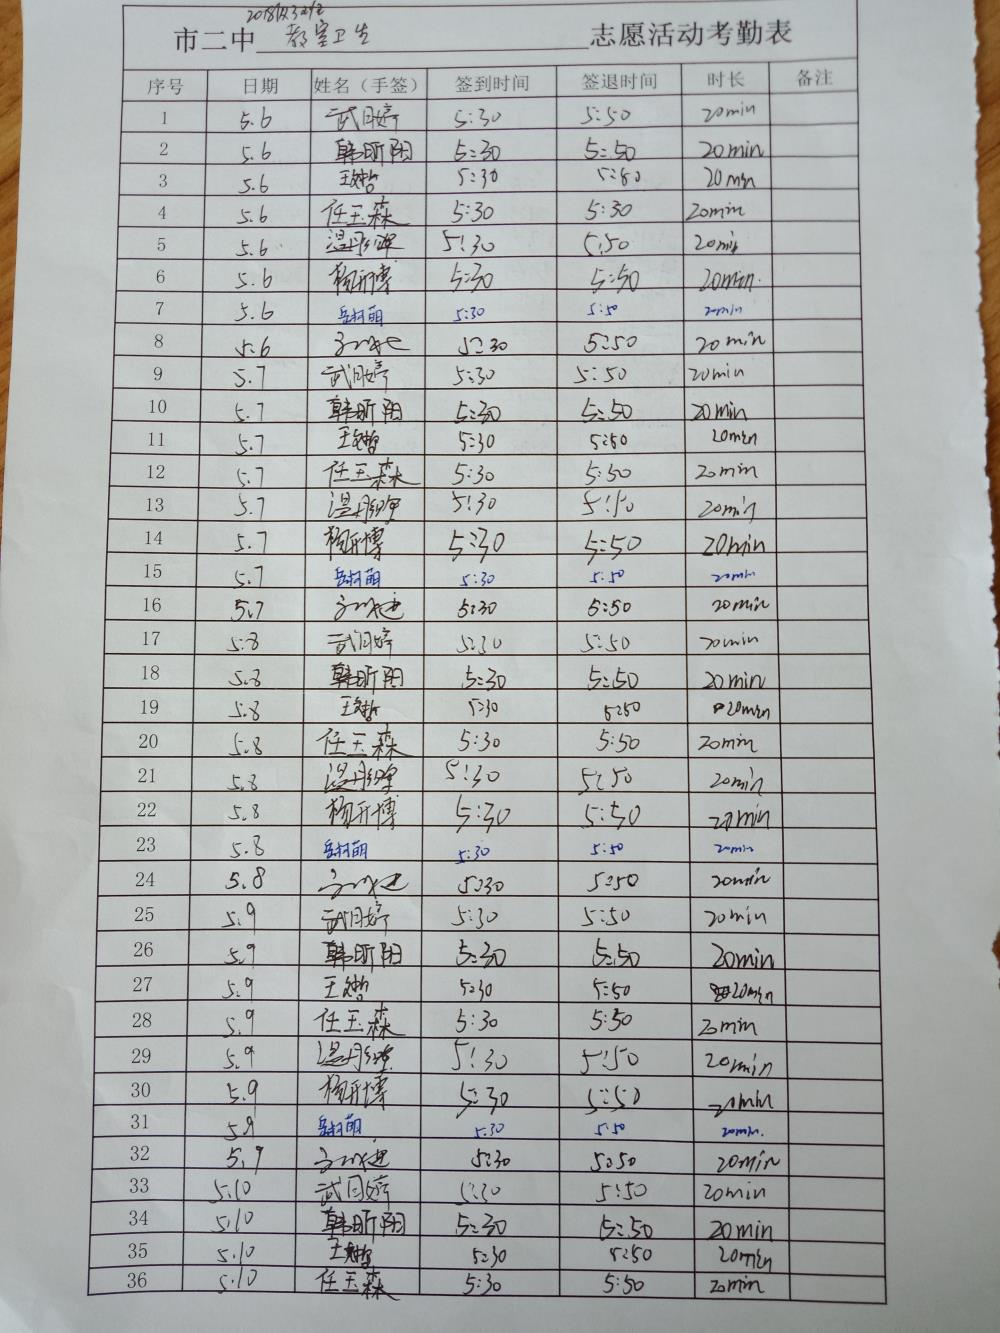 市二中 教室卫生 志愿活动考勤表
序号 日期 姓名（手签） 签到时间 签退时间 时长 备注
1 5.6 5:30 5:50 20min
2 5.6 韩昕阳 5:30 5:50 20min
3 5.6 5:30 5:50 20min
4 5.6 任玉森 5:30 5:30 20min
5 5.6 5:30 5:50 20min
6 5.6 5:30 5:50 20min
7 5.6 5:30 5:50 20min
8 5.6 5:30 5:50 20min
9 5.7 5:30 5:50 20min
10 5.7 韩昕阳 5:30 5:50 20min
11 5.7 5:30 5:50 20min
12 5.7 任玉森 5:30 5:50 20min
13 5.7 5:30 5:50 20min
14 5.7 5:30 5:50 20min
15 5.7 5:30 5:50 20min
16 5.7 5:30 5:50 20min
17 5.8 5:30 5:50 20min
18 5.8 韩昕阳 5:30 5:50 20min
19 5.8 5:30 5:50 20min
20 5.8 任玉森 5:30 5:50 20min
21 5.8 5:30 5:50 20min
22 5.8 5:30 5:50 20min
23 5.8 5:30 5:50 20min
24 5.8 5:30 5:50 20min
25 5.9 5:30 5:50 20min
26 5.9 韩昕阳 5:30 5:50 20min
27 5.9 5:30 5:50 20min
28 5.9 任玉森 5:30 5:50 20min
29 5.9 5:30 5:50 20min
30 5.9 5:30 5:50 20min
31 5.9 5:30 5:50 20min
32 5.9 5:30 5:50 20min
33 5.10 5:30 5:50 20min
34 5.10 韩昕阳 5:30 5:50 20min
35 5.10 5:30 5:50 20min
36 5.10 任玉森 5:30 5:50 20min